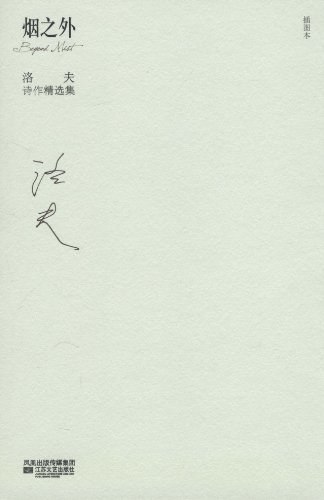 烟之外
Beyond Mist
插图本
洛 夫
诗作精选集
洛夫
凤凰出版传媒集团
江苏文艺出版社